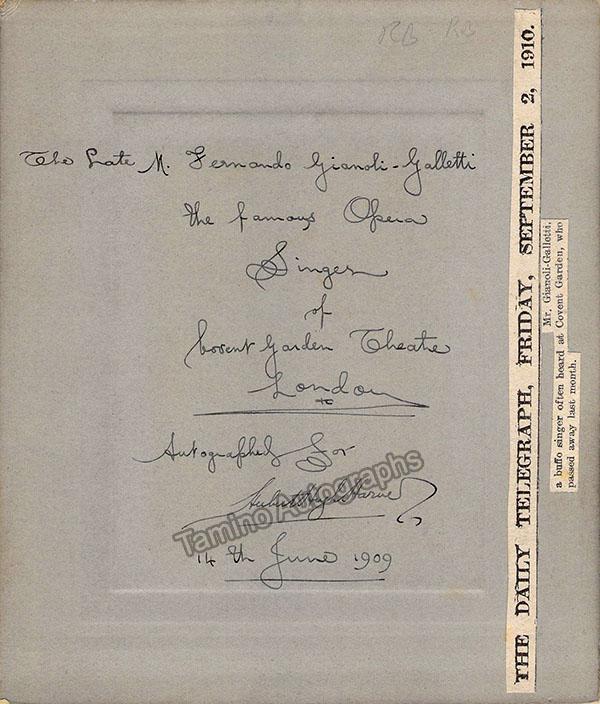 RB RB
The Late M. Fernando Gianoli-Galletti
the famous Opera
Singer
of
Covent Garden Theatre
London
Autographed For
Tamino Autographs
14th June 1909
THE DAILY TELEGRAPH, FRIDAY, SEPTEMBER 2, 1910.
Mr. Gianoli-Galletti,
a buffo singer often heard at Covent Garden, who
passed away last month.